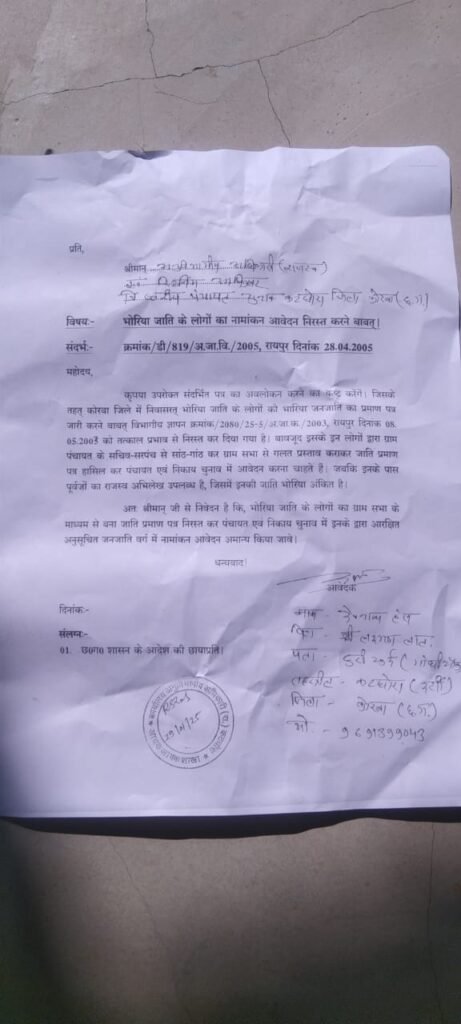 प्रति,
श्रीमान् अनुविभागीय अधिकारी (राजस्व)
एवं निर्वाचन अधिकारी
त्रि स्तरीय पंचायत चुनाव कटघोरा जिला कोरबा (छ.ग.)
विषयः- भोरिया जाति के लोगों का नामांकन आवेदन निरस्त करने बावत्।
संदर्भः- क्रमांक/डी/819/अ.जा.वि./2005, रायपुर दिनांक 28.04.2005
महोदय,
कृपया उपरोक्त संदर्भित पत्र का अवलोकन करने का कष्ट करेंगे। जिसके
तहत् कोरबा जिले में निवासरत् भोरिया जाति के लोगों को भारिया जनजाति का प्रमाण पत्र
जारी करने बावत् विभागीय ज्ञापन क्रमांक/2080/25-5/अ.जा.क./2003, रायपुर दिनांक 08.
05.2003 को तत्काल प्रभाव से निरस्त कर दिया गया है। बावजूद इसके इन लोगों द्वारा ग्राम
पंचायत के सचिव-सरपंच से सांठ-गांठ कर ग्राम सभा से गलत प्रस्ताव कराकर जाति प्रमाण
पत्र हासिल कर पंचायत एवं निकाय चुनाव में आवेदन करना चाहते हैं। जबकि इनके पास
पूर्वजों का राजस्व अभिलेख उपलब्ध है, जिसमें इनकी जाति भोरिया अंकित है।
अतः श्रीमान् जी से निवेदन है कि, भोरिया जाति के लोगों का ग्राम सभा के
माध्यम से बना जाति प्रमाण पत्र निरस्त कर पंचायत एवं निकाय चुनाव में इनके द्वारा आरक्षित
अनुसूचित जनजाति वर्ग में नामांकन आवेदन अमान्य किया जावे।
धन्यवाद!
आवेदक
दिनांकः-
नाम -
पिता - श्री लक्ष्मण लाल
संलग्नः-
पता -
01. छ0ग0 शासन के आदेश की छायाप्रति।
तहसील - कटघोरा
जिला - कोरबा (छ.ग.)
मो. - 9691399043